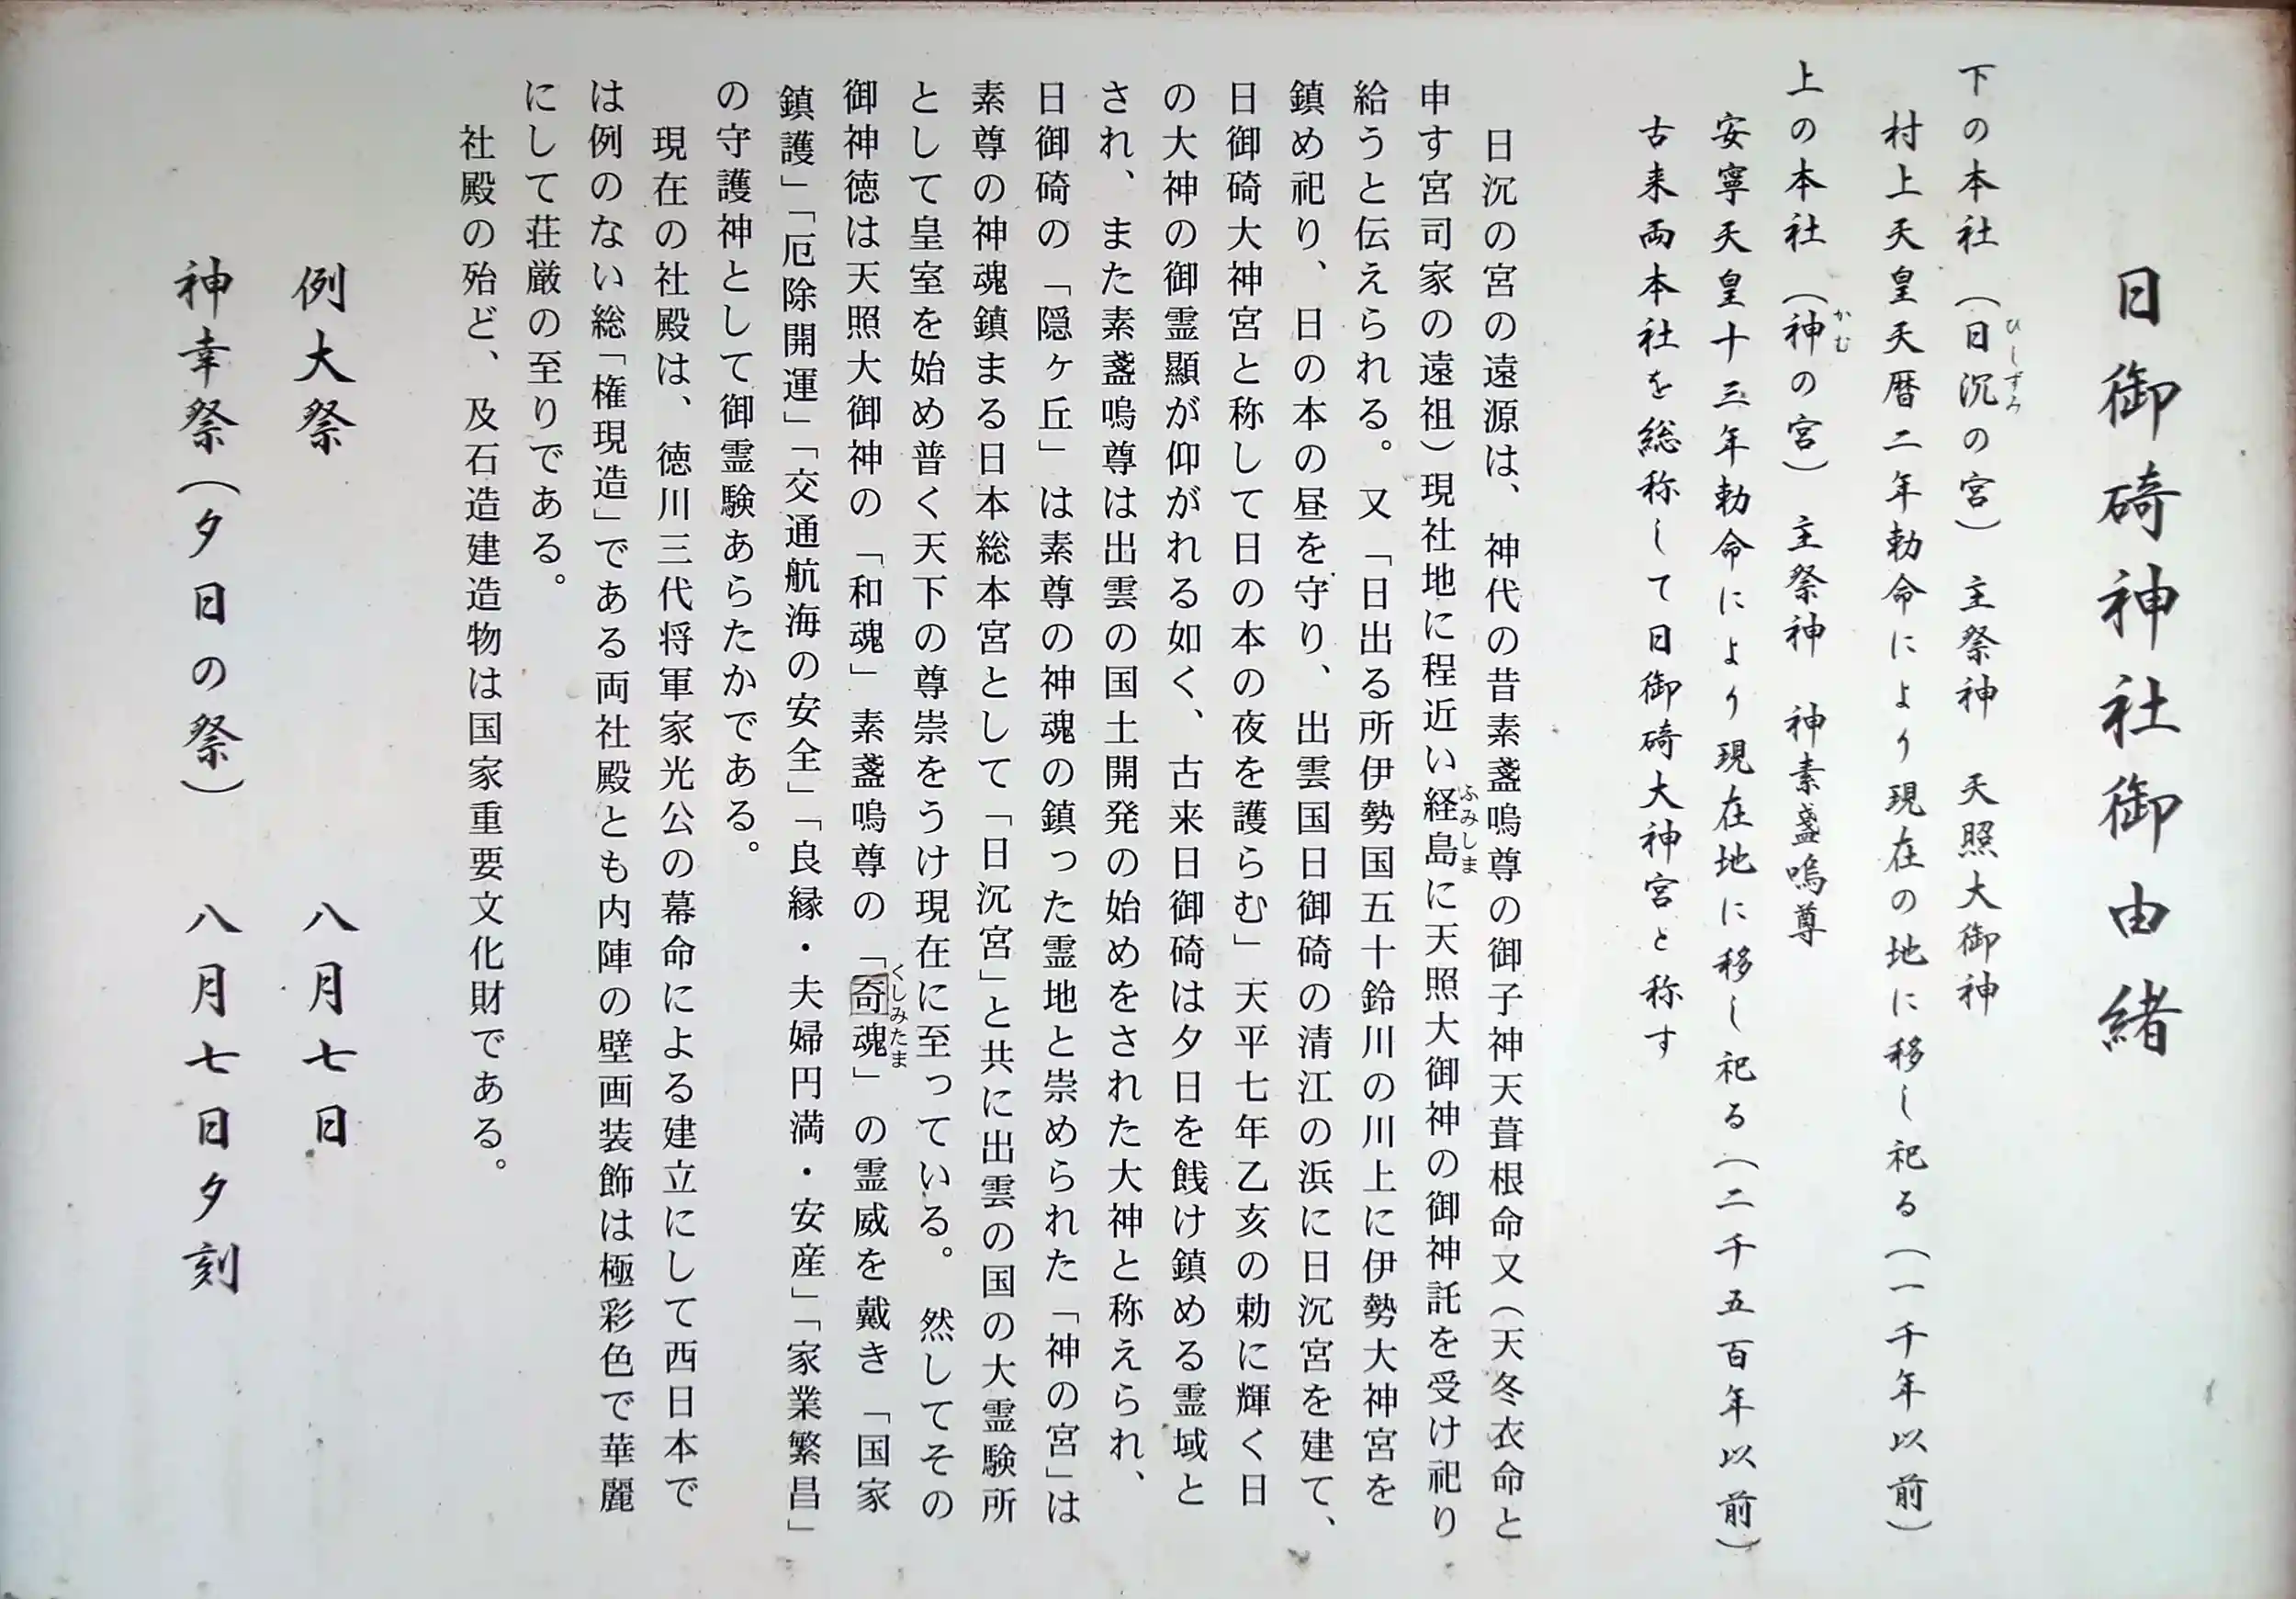 日御碕神社御由緒
下の本社（日沉の宮）　主祭神　天照大御神
ひしずみ
村上天皇天暦二年勅命により現在の地に移し祀る（一千年以前）
上の本社（神の宮）　主祭神　神素盞嗚尊
かむ
安寧天皇十三年勅命により現在地に移し祀る（二千五百年以前）
古来両本社を総称して日御碕大神宮と称す
日沉の宮の遠源は、神代の昔素盞嗚尊の御子神天葺根命又（天冬衣命と
申す宮司家の遠祖）現社地に程近い経島に天照大御神の御神託を受け祀り
ふみしま
給うと伝えられる。又「日出る所伊勢国五十鈴川の川上に伊勢大神宮を
鎮め祀り、日の本の昼を守り、出雲国日御碕の清江の浜に日沉宮を建て、
日御碕大神宮と称して日の本の夜を護らむ」天平七年乙亥の勅に輝く日
の大神の御霊顯が仰がれる如く、古来日御碕は夕日を餞け鎮める霊域と
され、また素盞嗚尊は出雲の国土開発の始めをされた大神と称えられ、
日御碕の「隠ヶ丘」は素尊の神魂の鎮った霊地と崇められた「神の宮」は
素尊の神魂鎮まる日本総本宮として「日沉宮」と共に出雲の国の大霊験所
として皇室を始め普く天下の尊崇をうけ現在に至っている。然してその
御神徳は天照大御神の「和魂」素盞嗚尊の「奇魂」の霊威を戴き「国家
くしみたま
鎮護」「厄除開運」「交通航海の安全」「良縁・夫婦円満・安産」「家業繁昌」
の守護神として御霊験あらたかである。
現在の社殿は、徳川三代将軍家光公の幕命による建立にして西日本で
は例のない総「権現造」である両社殿とも内陣の壁画装飾は極彩色で華麗
にして荘厳の至りである。
社殿の殆ど、及石造建造物は国家重要文化財である。
例大祭　八月七日
神幸祭（夕日の祭）　八月七日夕刻